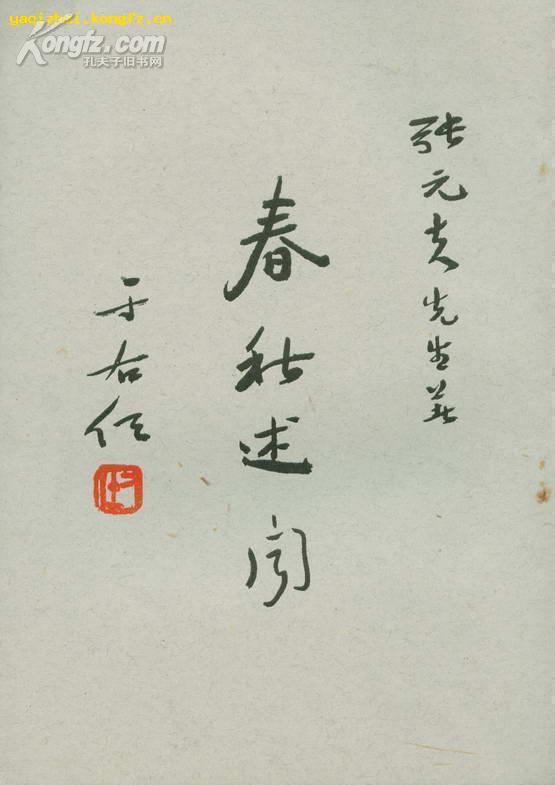 yaqizhai.kongfz.cn
Kongfz.com
孔夫子旧书网
張元夫先生著
春秋述聞
于右任